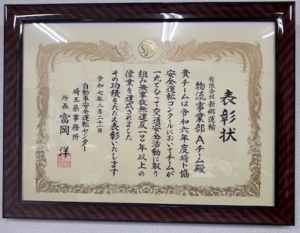 表彰状
有限会社新郷運輸
物流事業部Aチーム殿
貴チームは令和六年度埼ト協
安全運転コンクールにおいてチームが
一丸となって交通安全活動に取り
組み無事故無違反一八〇日以上の
偉業を達成されました
その功績をたたえ表彰いたします
令和七年二月二十一日
自動車安全運転センター
埼玉県事務所
所長 富岡 洋